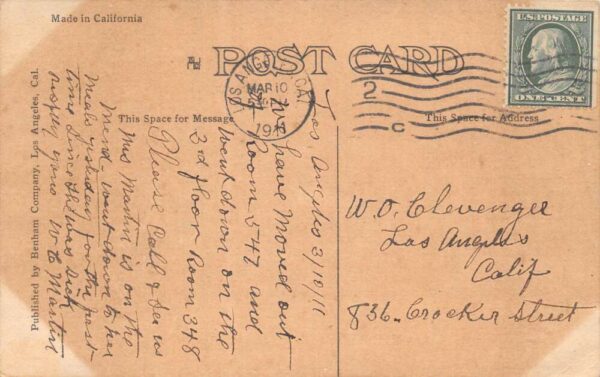 Made in California
POST CARD
LOS ANGELES, CAL.
MAR 10
1911
2
C
U.S. POSTAGE
ONE CENT
This Space for Message
This Space for Address
Published by Benham Company, Los Angeles, Cal.
Los Angeles 3/10/11
We have moved out
of Room 547 and
went down on the
3d floor Room 348
Please Call & See us
Mrs Martin is on the
Mend - went down to her
Meals yesterday for the first
time since she was sick
Yours W E Martin
W.O. Clevenger
Los Angeles
Calif
836 - Crocker Street